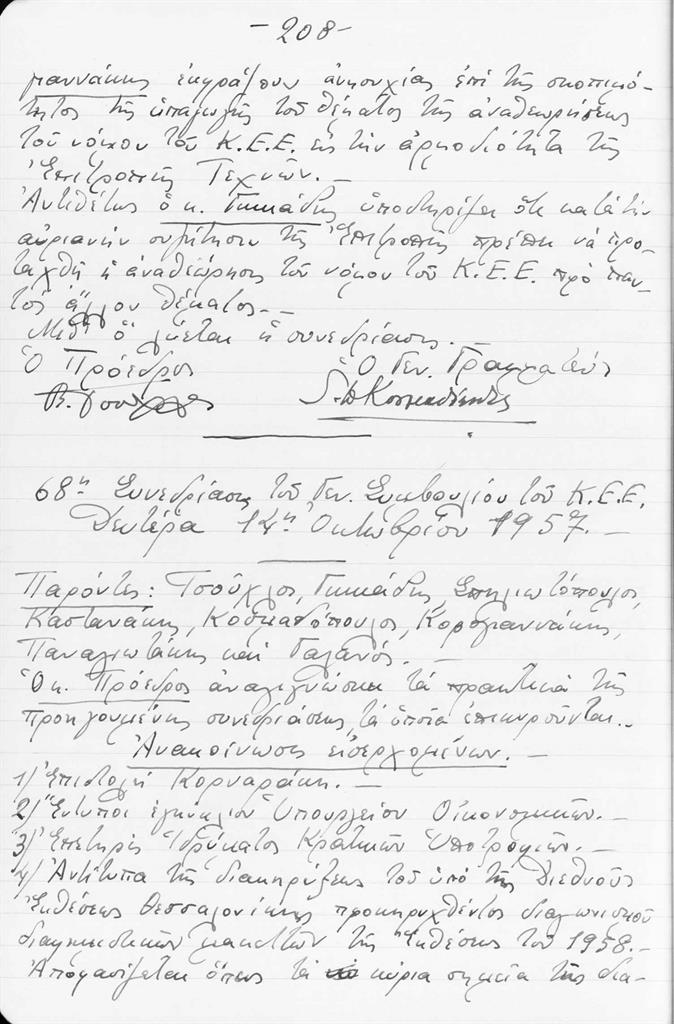 -208-
γιαννάκης ἐκφράζουν ἀνησυχίας ἐπὶ τῆς σκοπιμό-
τητος τῆς ὑπαγωγῆς τοῦ θέματος τῆς ἀναθεωρήσεως
τοῦ νόμου τοῦ Κ.Ε.Ε. εἰς τὴν ἁρμοδιότητα τῆς
Ἐπιτροπῆς Τεχνῶν. —
Ἀντιθέτως ὁ κ. Γκικάδης ὑποστηρίζει ὅτι κατὰ τὴν
αὐριανὴν συζήτησιν τῆς Ἐπιτροπῆς πρέπει νὰ προ-
ταχθῆ ἡ ἀναθεώρησις τοῦ νόμου τοῦ Κ.Ε.Ε. πρὸ παν-
τὸς ἄλλου θέματος. —
Μεθ' ὃ λύεται ἡ συνεδρίασις. —
Ὁ Πρόεδρος Ὁ Γεν. Γραμματεύς
68η Συνεδρίασις τοῦ Γεν. Συμβουλίου τοῦ Κ.Ε.Ε.
Δευτέρα 14η Ὀκτωβρίου 1957. —
Παρόντες: Τσοῦχλος, Γκικάδης, Σπηλιωτόπουλος,
Καστανάκης, Κοσμαδόπουλος, Κορογιαννάκης,
Παναγιωτάκης καὶ Γαλανός. —
Ὁ κ. Πρόεδρος ἀναγιγνώσκει τὰ πρακτικὰ τῆς
προηγουμένης συνεδριάσεως, τὰ ὁποῖα ἐπικυροῦνται. —
Ἀνακοίνωσις εἰσερχομένων. —
1/ Ἐπιστολὴ Κορναράκη. —
2/ Ἔντυποι ἐγκύκλιοι Ὑπουργείου Οἰκονομικῶν. —
3/ Ἐπετηρὶς Ἱδρύματος Κρατικῶν Ὑποτροφιῶν. —
4/ Ἀντίτυπα τῆς διακηρύξεως τοῦ ὑπὸ τῆς Διεθνοῦς
Ἐκθέσεως Θεσσαλονίκης προκηρυχθέντος διαγωνισμοῦ
διαφημιστικῶν μακεττῶν τῆς Ἐκθέσεως τοῦ 1958. —
Ἀποφασίζεται ὅπως τὰ κύρια σημεῖα τῆς δια-